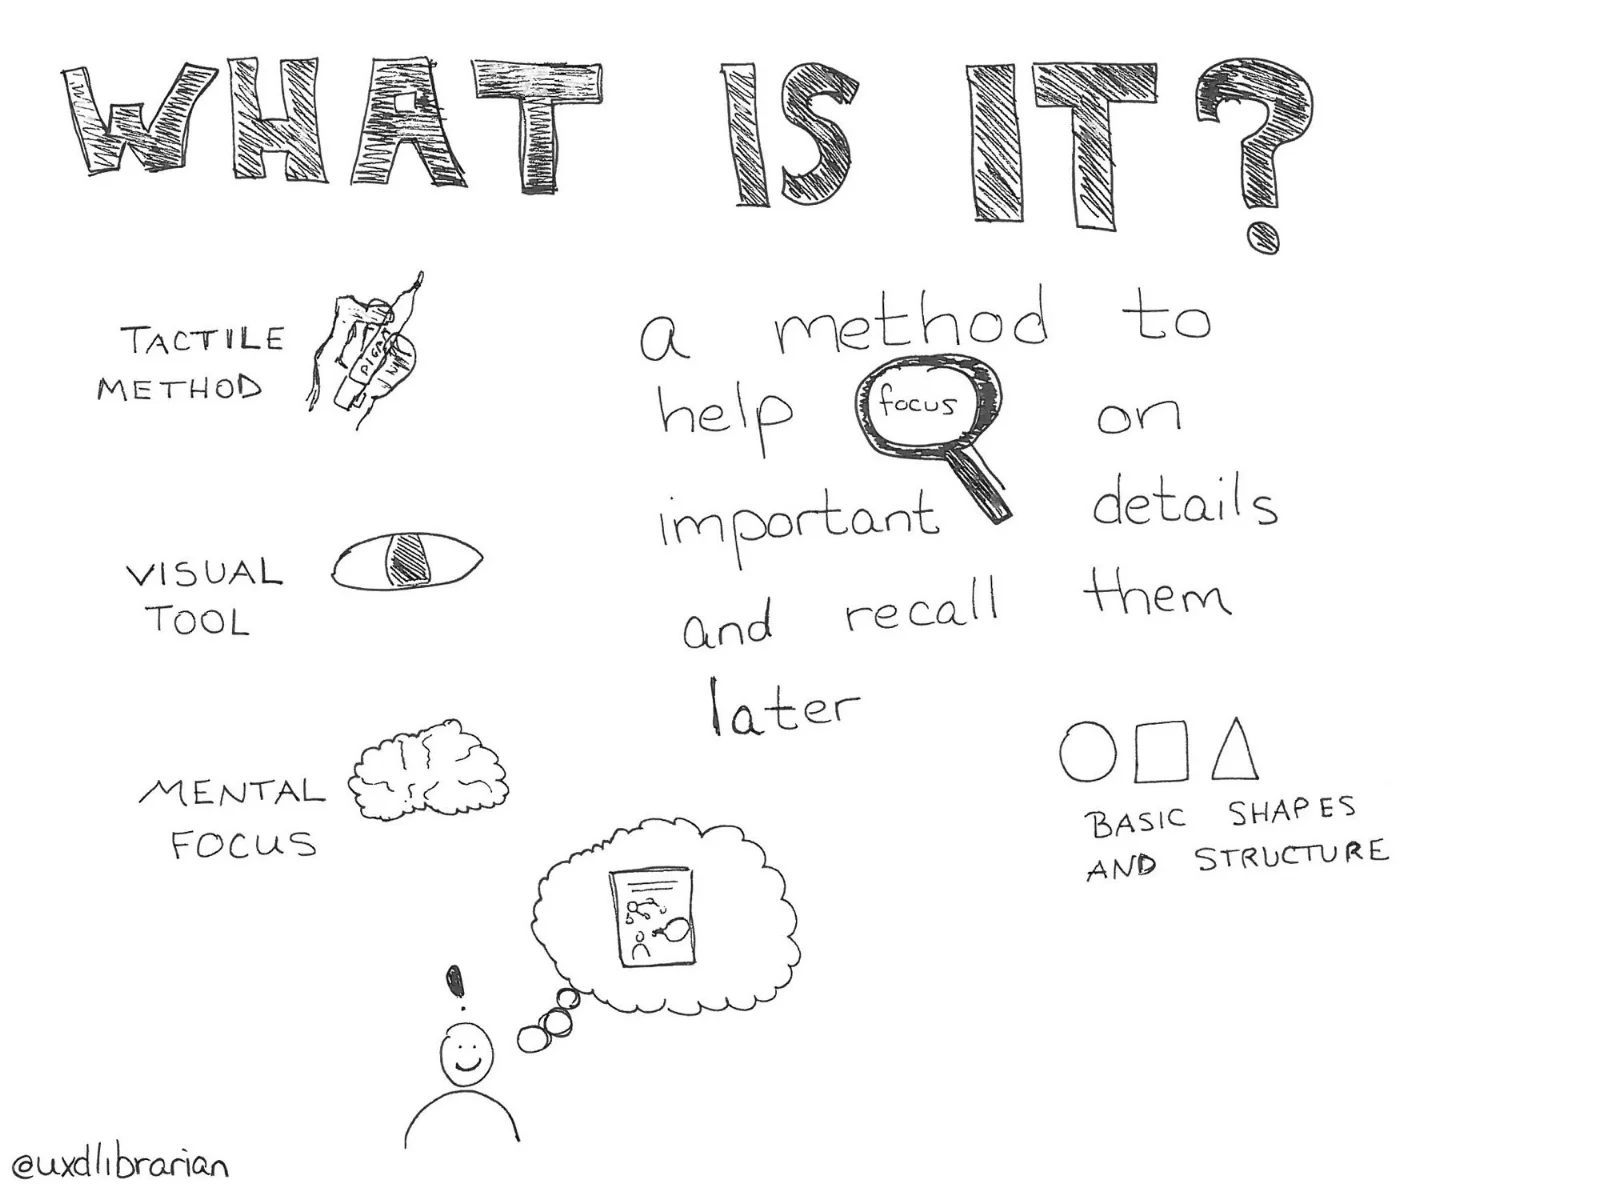 WHAT IS IT?
TACTILE
METHOD
a method to
help focus on
important details
and recall them
later
VISUAL
TOOL
MENTAL
FOCUS
BASIC SHAPES
AND STRUCTURE
@uxdlibrarian